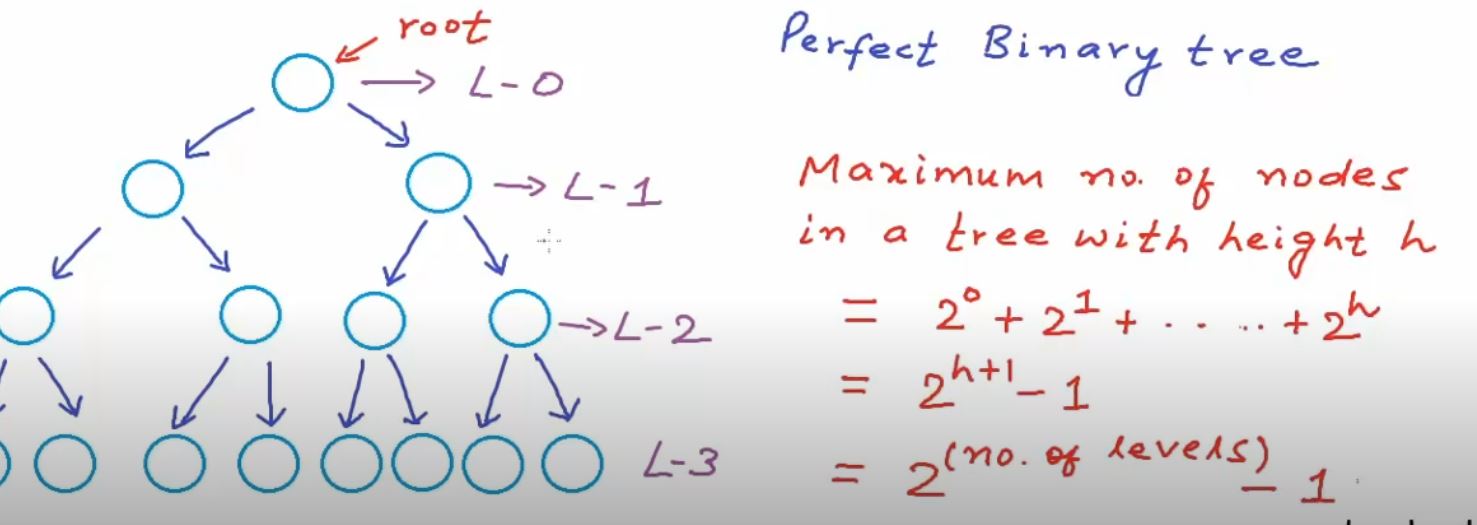 root
L-0
L-1
L-2
L-3
Perfect Binary tree
Maximum no. of nodes
in a tree with height h
= 2⁰ + 2¹ + ...... + 2ʰ
= 2ʰ⁺¹ - 1
= 2^(no. of levels) - 1